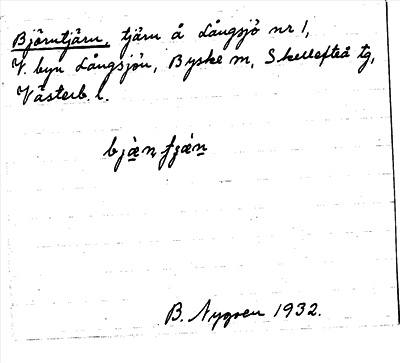 Björntjärn, tjärn å Långsjö nr 1,
V. byn Långsjön, Byske sn, Skellefteå tg,
Västerb. l.
B. Nygren 1932.